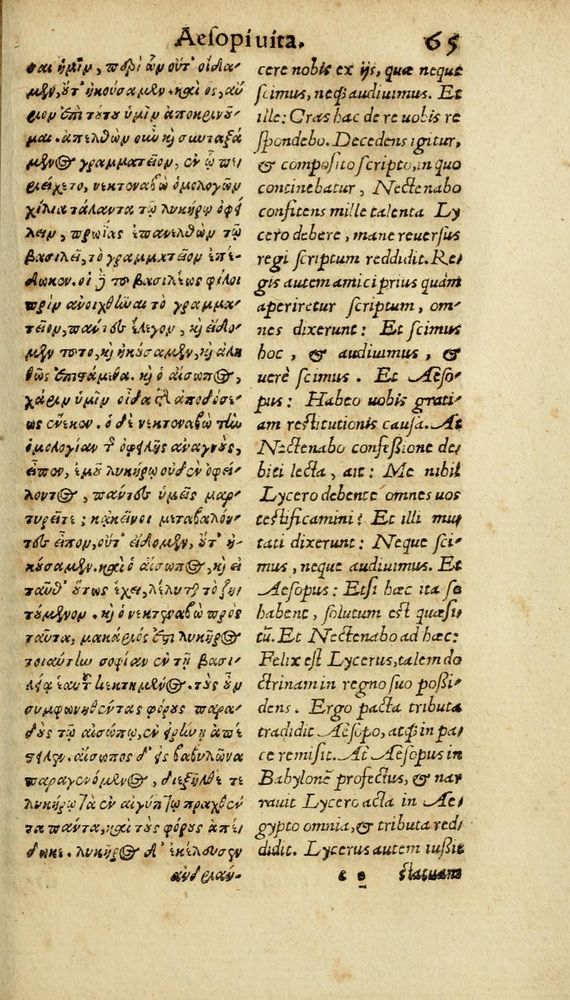 Aesopi uita. 65
σαι ἡμῖν, περὶ ὧν οὔτ' οἴδα-
μεν, οὔτ' ἠκούσαμεν. καὶ ὃς, αὔ-
ριον ἐπὶ τούτου ὑμῖν ἀποκρινοῦ-
μαι. ἀπελθὼν οὖν καὶ συνταξά-
μενος γραμματεῖον, ἐν ᾧ πε-
ριείχετο, νεκτεναβὼ ὁμολογῶν
χίλια τάλαντα τῷ λυκήρῳ ὀφεί-
λειν, πρωΐας ἐπανελθὼν τῷ
βασιλεῖ, τὸ γραμματεῖον ἐπέ-
δωκεν. οἱ δὲ τοῦ βασιλέως φίλοι
πρὶν ἀνοιχθῆναι τὸ γραμμα-
τεῖον, πάντες ἔλεγον, καὶ εἴδο-
μεν τοῦτο, καὶ ἠκούσαμεν, καὶ ἀλη-
θῶς ἐπιστάμεθα. καὶ ὁ αἴσωπος,
χάριν ὑμῖν οἶδα τῆς ἀποδόσε-
ως ἕνεκεν. ὁ δὲ νεκτεναβὼ τὴν
ὁμολογίαν τῆς ὀφειλῆς ἀναγνοὺς,
εἶπεν, ἐμοῦ λυκήρῳ οὐδὲν ὀφεί-
λοντος, πάντες ὑμεῖς μαρ-
τυρεῖτε; κἀκεῖνοι μεταβαλόν-
τες εἶπον, οὔτ' εἴδομεν, οὔτ' ἠ-
κούσαμεν. καὶ ὁ αἴσωπος, καὶ εἰ
ταῦθ' οὕτως ἔχει, λέλυται τὸ ζη-
τούμενον. καὶ ὁ νεκτεναβὼ πρὸς
ταῦτα, μακάριός ἐστι λυκῆρος
τοιαύτην σοφίαν ἐν τῇ βασι-
λείᾳ ἑαυτοῦ κεκτημένος. τοὺς οὖν
συμφωνηθέντας φόρους παρα-
δοὺς τῷ αἰσώπῳ, ἐν εἰρήνῃ ἀπέ-
στειλεν. αἴσωπος δ' εἰς βαβυλῶνα
παραγενόμενος, διεξῆλθέ τε
λυκήρῳ τὰ ἐν αἰγύπτῳ πραχθέν
τα πάντα, καὶ τοὺς φόρους ἀπέ-
δωκε. λυκῆρος δ' ἐκέλευσεν
ἀνδριάν-
cere nobis ex ijs, quæ neque
scimus, neq; audiuimus. Et
ille: Cras hac de re uobis re
spondebo. Decedens igitur,
& composito scripto, in quo
continebatur, Nectenabo
confitens mille talenta Ly
cero debere, mane reuersus
regi scriptum reddidit. Re-
gis autem amici prius quàm
aperiretur scriptum, om-
nes dixerunt: Et scimus
hoc, & audiuimus, &
uerè scimus. Et Aeso-
pus: Habeo uobis grati-
am restitutionis causa. At
Nectenabo confessione de-
biti lecta, ait: Me nihil
Lycero debente omnes uos
testificamini? Et illi mu-
tati dixerunt: Neque sci-
mus, neque audiuimus. Et
Aesopus: Etsi hæc ita se
habent, solutum est quæsi-
tũ. Et Nectenabo ad hæc:
Felix est Lycerus, talem do
ctrinam in regno suo possi-
dens. Ergo pacta tributa
tradidit Aesopo, atq; in pa-
ce remisit. At Aesopus in
Babylonẽ profectus, & nar
rauit Lycero acta in Ae-
gypto omnia, & tributa red-
didit. Lycerus autem iussit
e e statuam